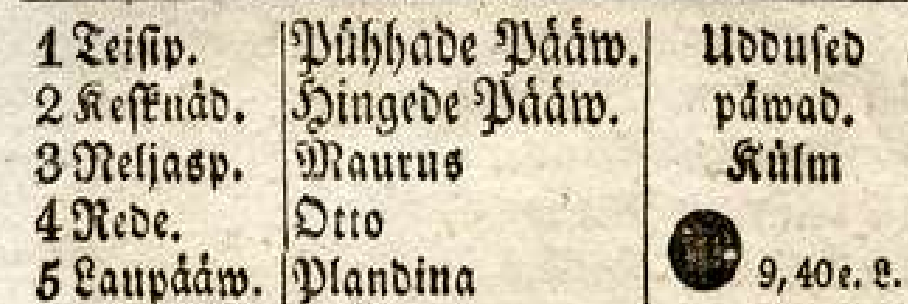 1 Teisip. Pühhade Pääw. Uddused
2 Keſknäd. Hingede Pääw. päwad.
3 Neljasp. Maurus Külm
4 Rede. Otto
5 Laupääw. Plandina 9, 40 e. L.